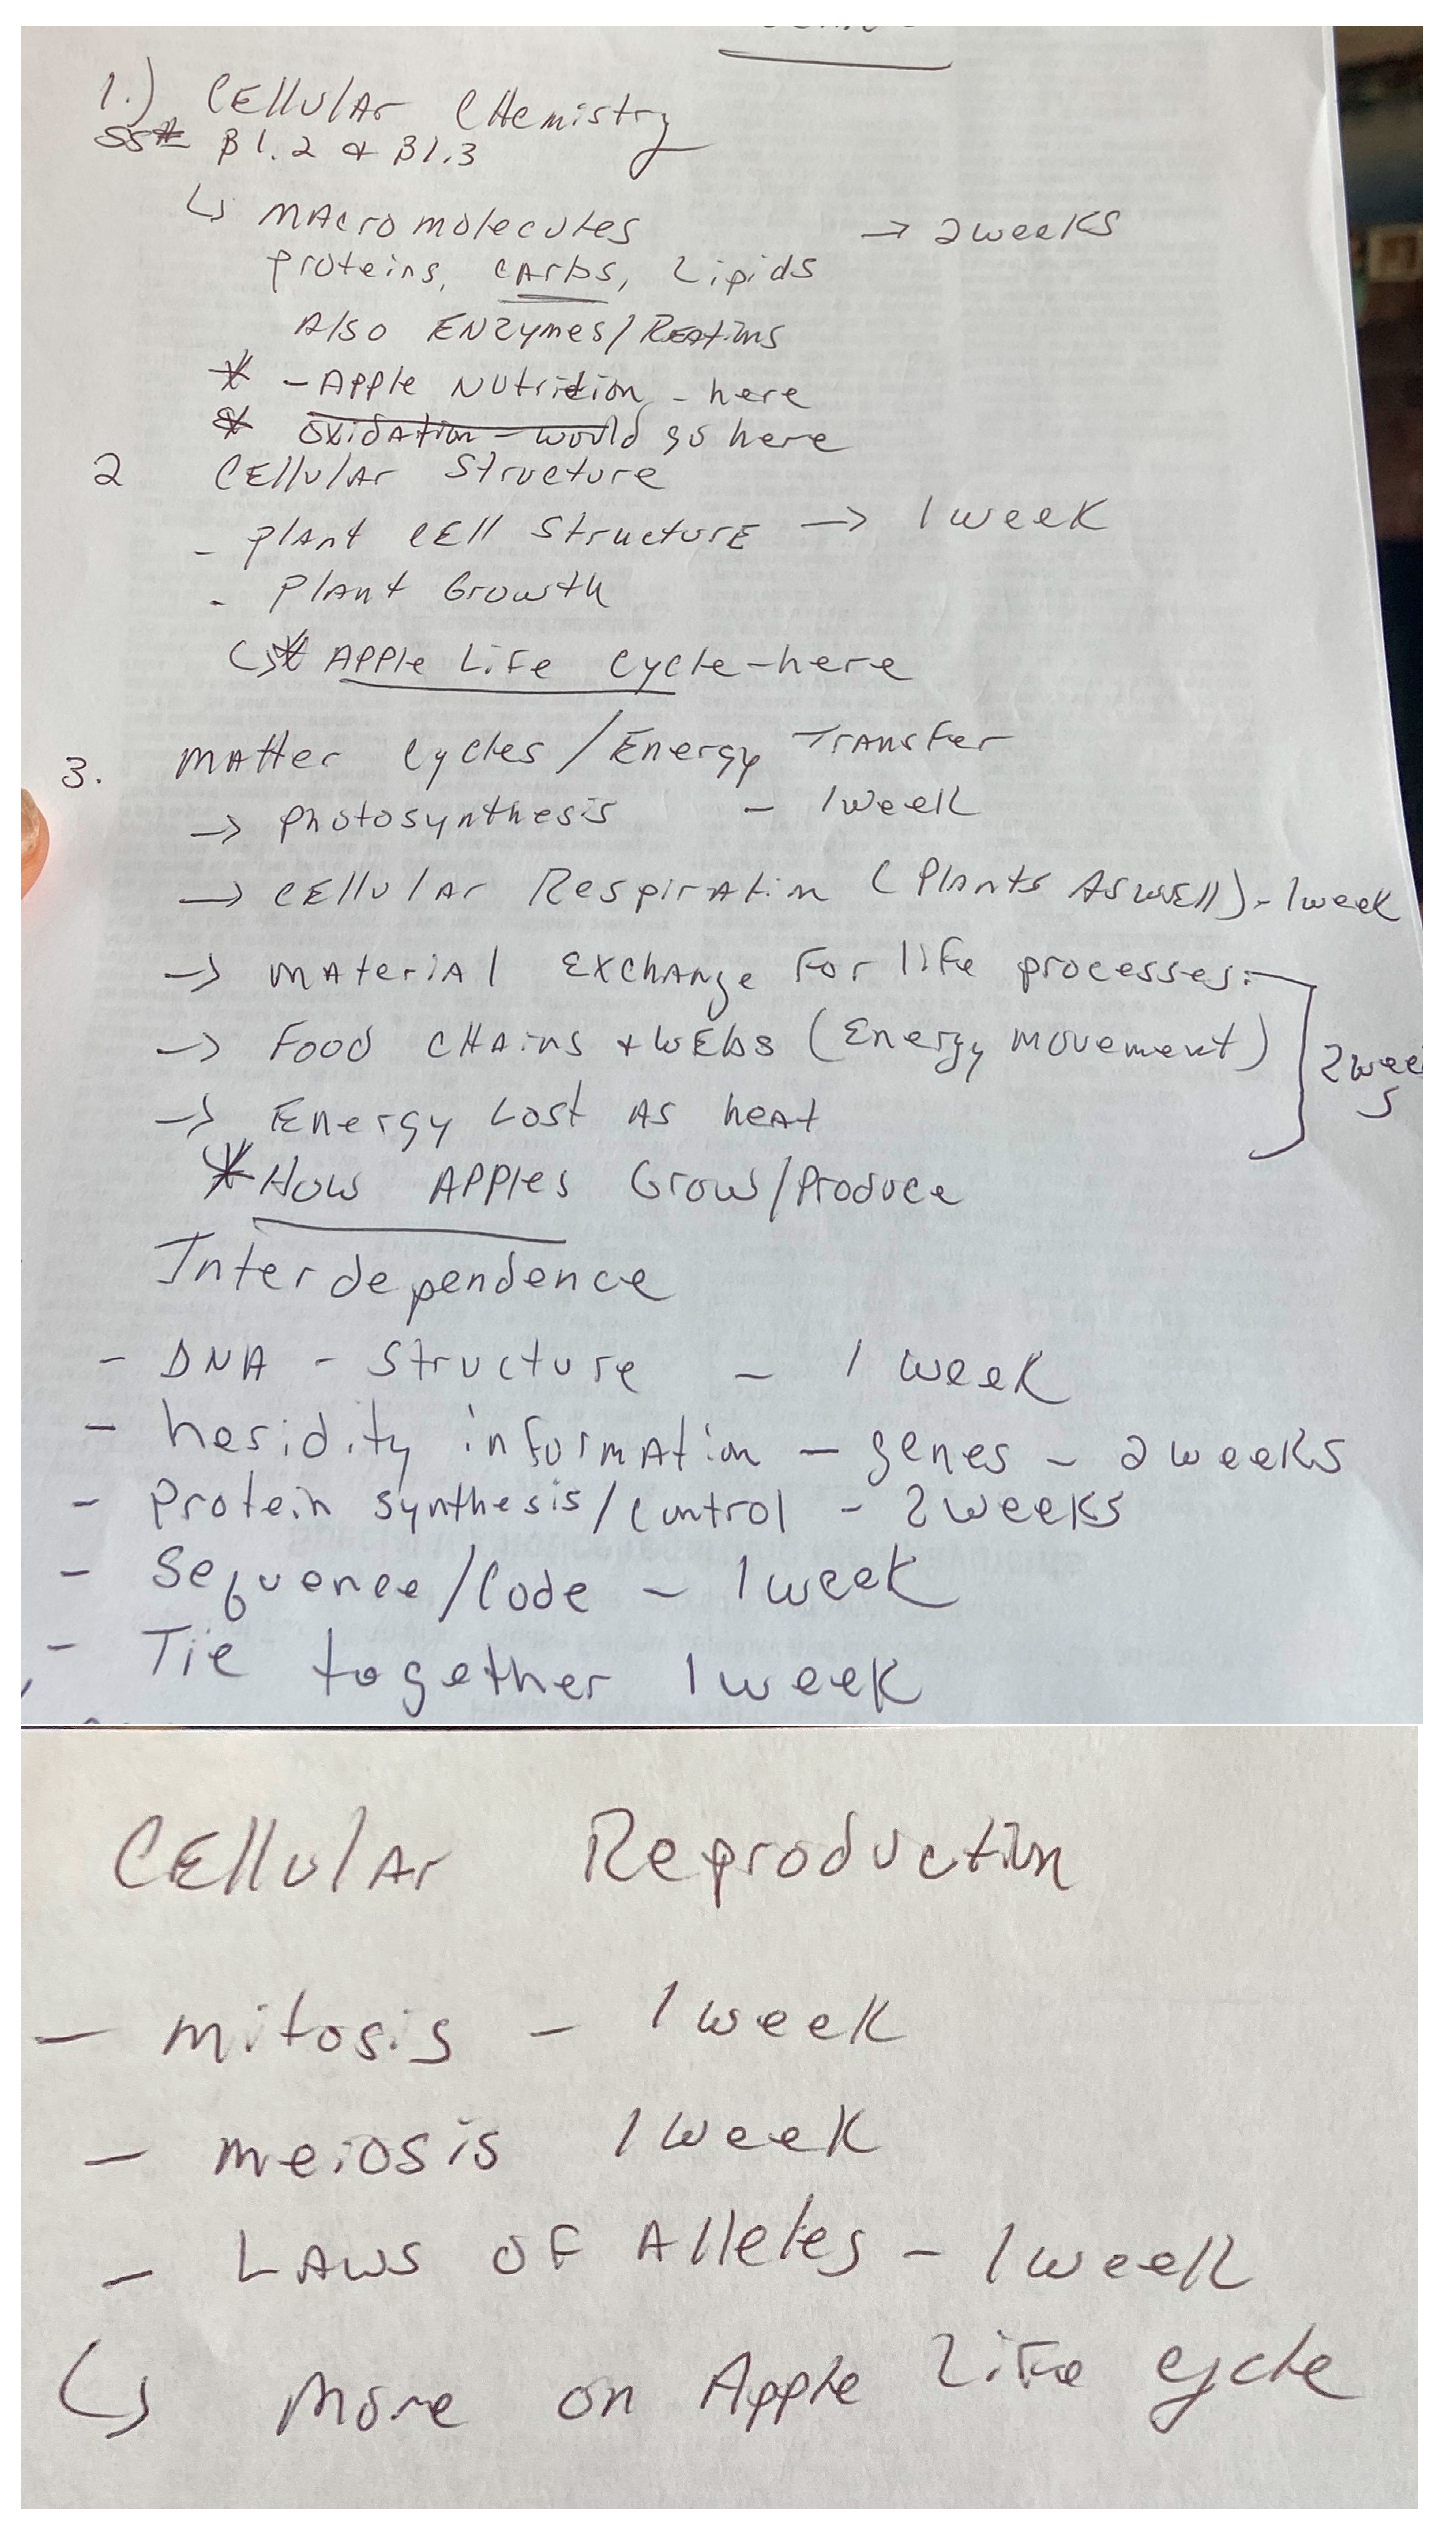 1.) Cellular Chemistry
B1.2 & B1.3
↳ Macromolecules → 2 weeks
proteins, carbs, Lipids
Also Enzymes/
* - Apple Nutrition - here
* oxidation - would go here
2 Cellular Structure
- plant cell Structure → 1 week
- plant Growth
↳* Apple Life cycle - here
3. Matter cycles / Energy Transfer
→ photosynthesis - 1 week
→ cellular Respiration (Plants As well) - 1 week
→ Material Exchange For life processes.
→ Food chains + webs (Energy movement) 2 wee
s
→ Energy Lost As heat
* How Apples Grow/Produce
Interdependence
- DNA - Structure - 1 week
- heridity information - genes - 2 weeks
- Protein synthesis/control - 2 weeks
- Sequence/Code - 1 week
- Tie together 1 week
Cellular Reproduction
- mitosis - 1 week
- meiosis 1 week
- Laws of Alleles - 1 week
↳ More on Apple Life cycle